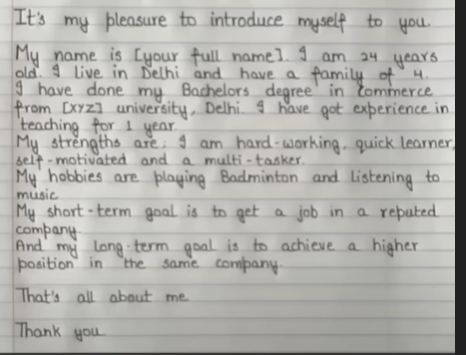 It's my pleasure to introduce myself to you.
My name is [your full name]. I am 24 years
old. I live in Delhi and have a family of 4.
I have done my Bachelors degree in Commerce
from [XYZ] university, Delhi. I have got experience in
teaching for 1 year.
My strengths are: I am hard-working, quick learner,
self-motivated and a multi-tasker.
My hobbies are playing Badminton and listening to
music
My short-term goal is to get a job in a reputed
company.
And my long-term goal is to achieve a higher
position in the same company.
That's all about me.
Thank you.